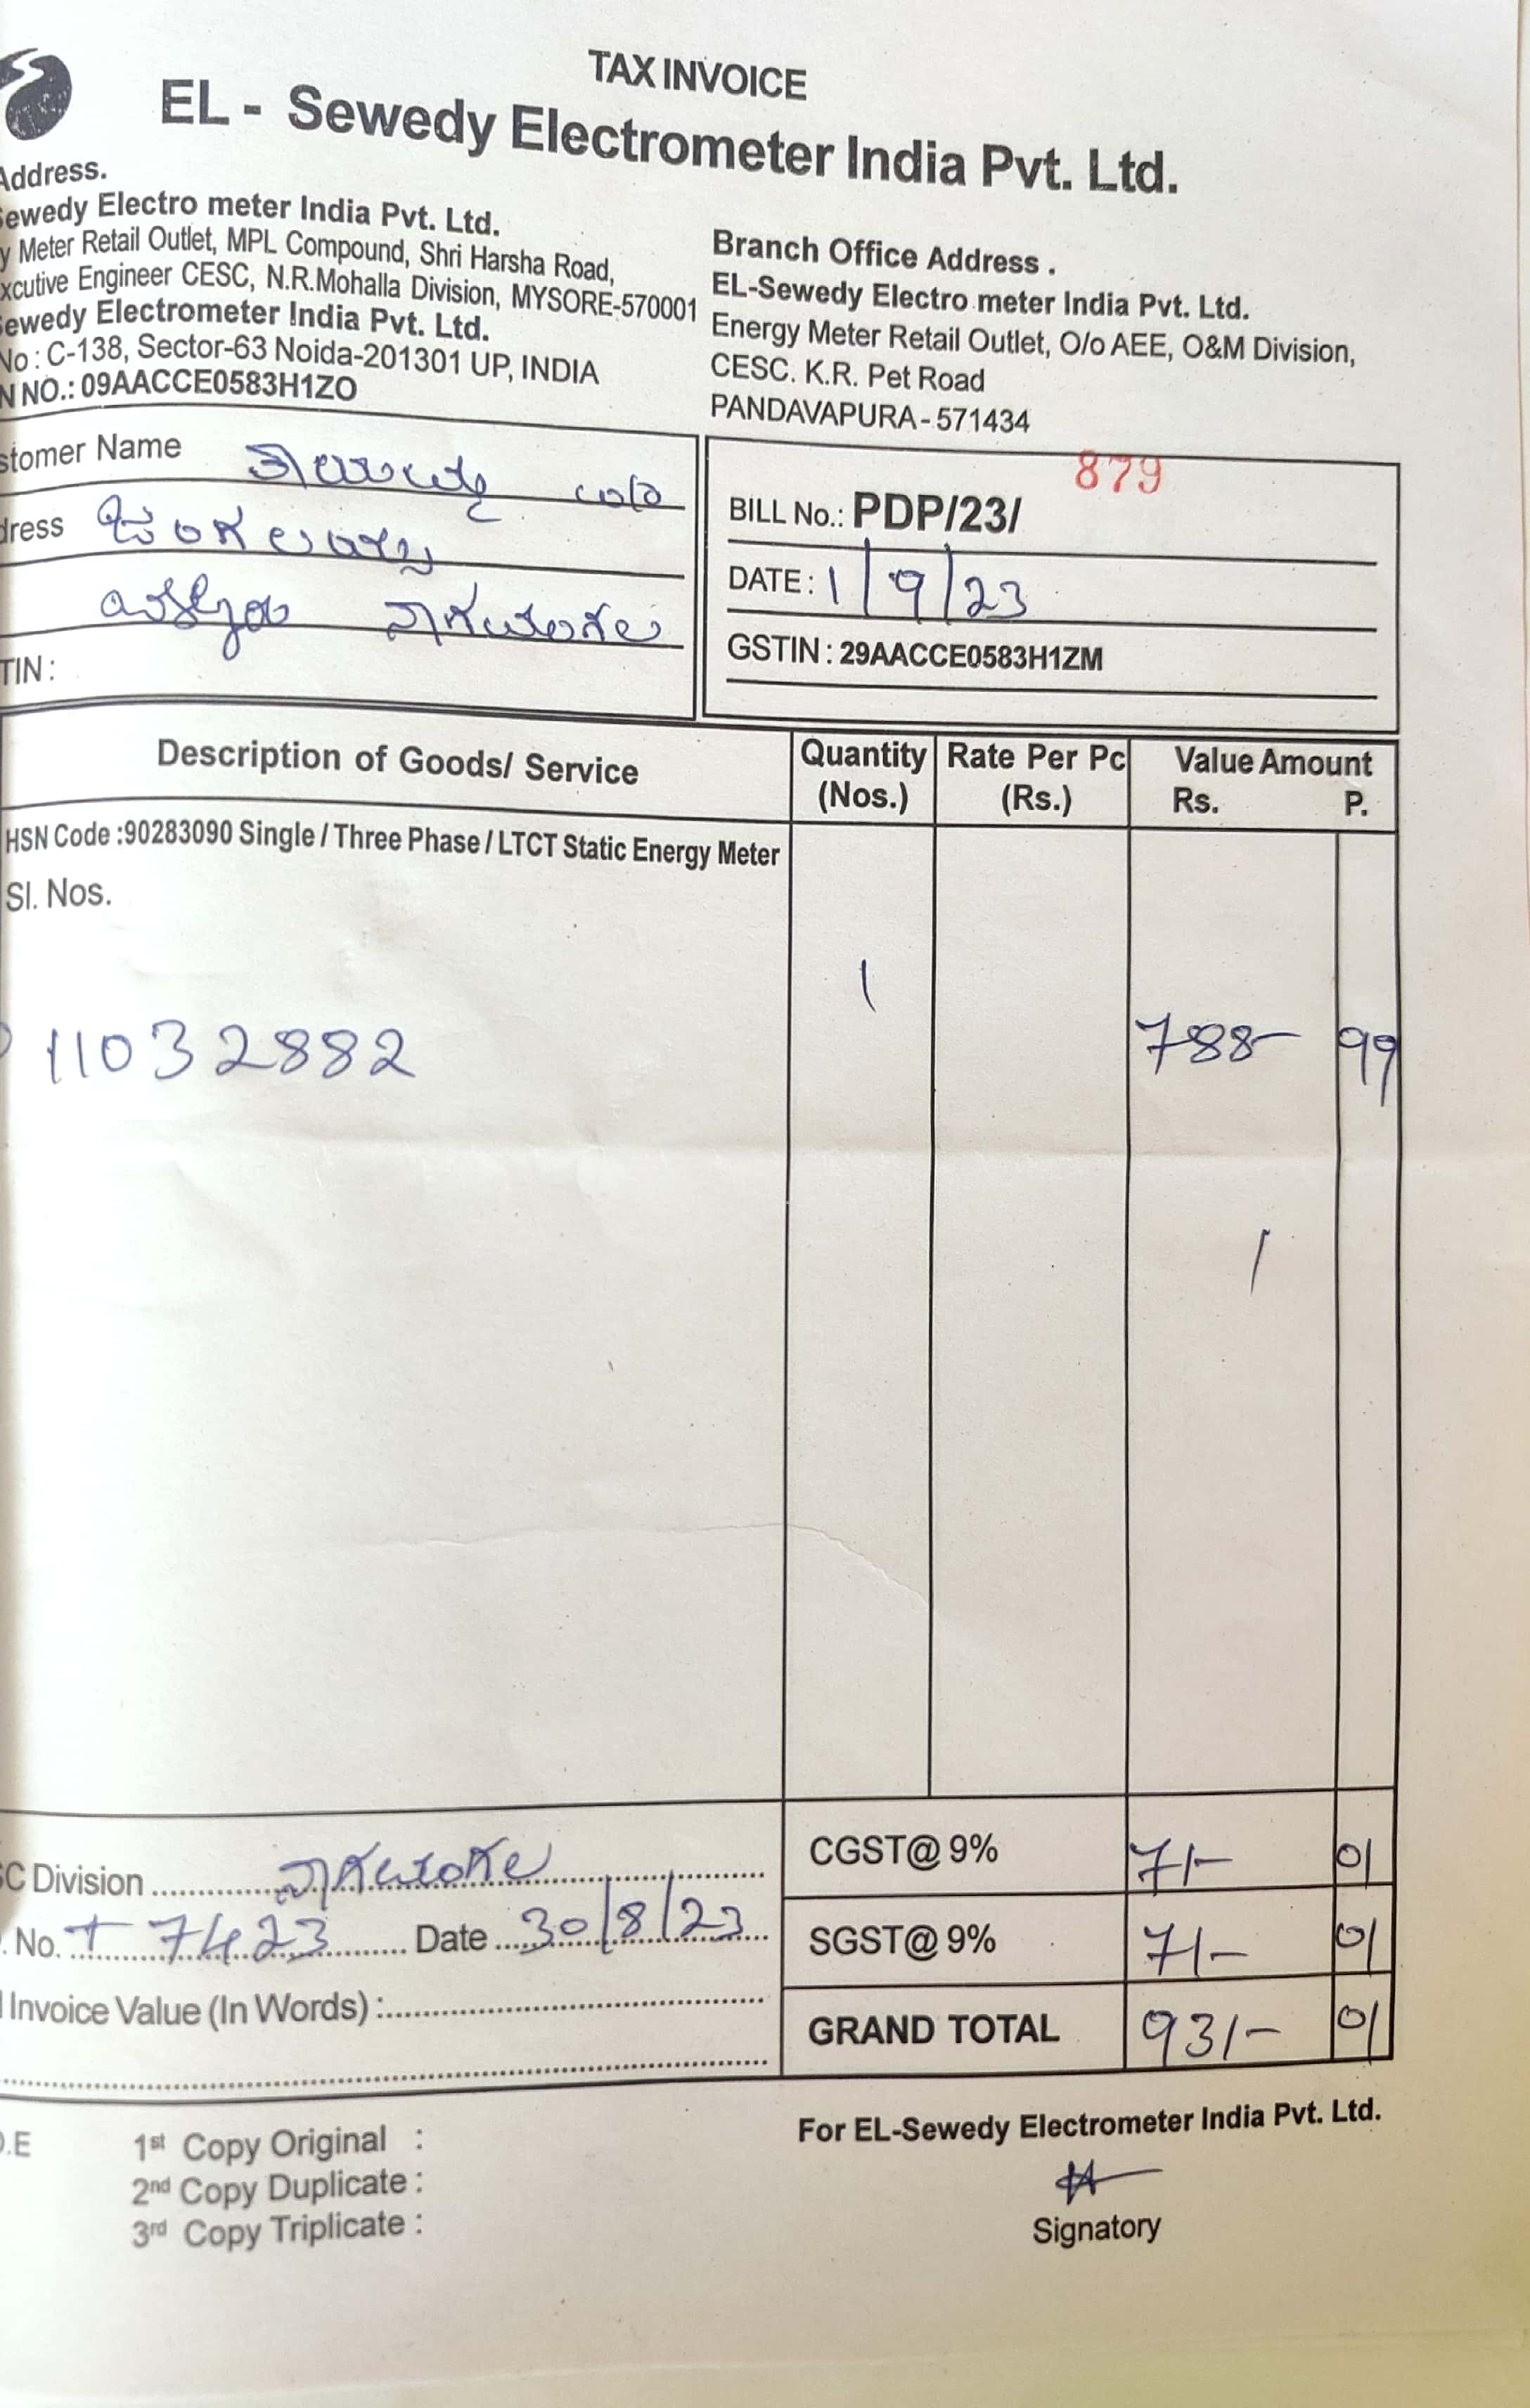 TAX INVOICE
EL - Sewedy Electrometer India Pvt. Ltd.
Address.
Sewedy Electro meter India Pvt. Ltd.
y Meter Retail Outlet, MPL Compound, Shri Harsha Road,
xcutive Engineer CESC, N.R.Mohalla Division, MYSORE-570001
Sewedy Electrometer India Pvt. Ltd.
No : C-138, Sector-63 Noida-201301 UP, INDIA
N NO.: 09AACCE0583H1ZO
Branch Office Address .
EL-Sewedy Electro meter India Pvt. Ltd.
Energy Meter Retail Outlet, O/o AEE, O&M Division,
CESC. K.R. Pet Road
PANDAVAPURA - 571434
stomer Name
dress
ನಾಗಮಂಗಲ
TIN :
879
BILL No.: PDP/23/
DATE : 1/9/23
GSTIN : 29AACCE0583H1ZM
Description of Goods/ Service Quantity (Nos.) Rate Per Pc (Rs.) Value Amount Rs. P.
HSN Code :90283090 Single / Three Phase / LTCT Static Energy Meter
Sl. Nos.
1
11032882 788- 99
C Division నాಗಮಂಗಲ
. No. T 7423 Date 30/8/23
Invoice Value (In Words) :
CGST@ 9% 71- 01
SGST@ 9% 71- 01
GRAND TOTAL 931- 01
.E
1st Copy Original :
2nd Copy Duplicate :
3rd Copy Triplicate :
For EL-Sewedy Electrometer India Pvt. Ltd.
Signatory